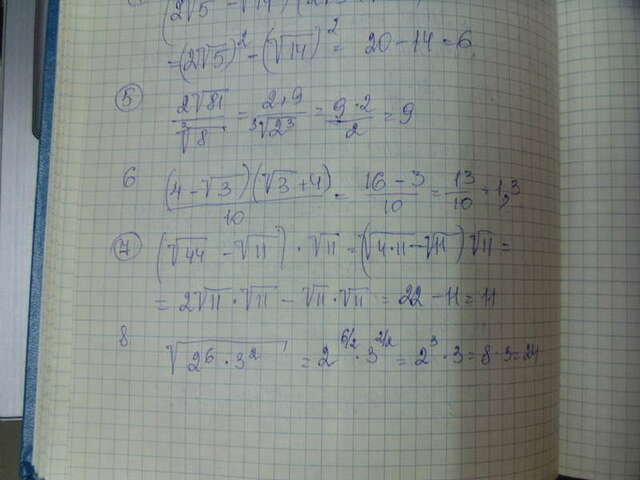 (2√5 - √14) (2√5
= (2√5)² - (√14)² = 20 - 14 = 6
5 2√81 / ∛8 = 2·9 / ∛2³ = 9·2 / 2 = 9
6 (4 - √3)(√3 + 4) / 10 = 16 - 3 / 10 = 13 / 10 = 1,3
7 (√44 - √11) · √11 = (√4·11 - √11) √11 =
= 2√11 · √11 - √11 · √11 = 22 - 11 = 11
8 √2⁶ · 3² = 2^6/2 · 3^2/2 = 2³ · 3 = 8 · 3 = 24